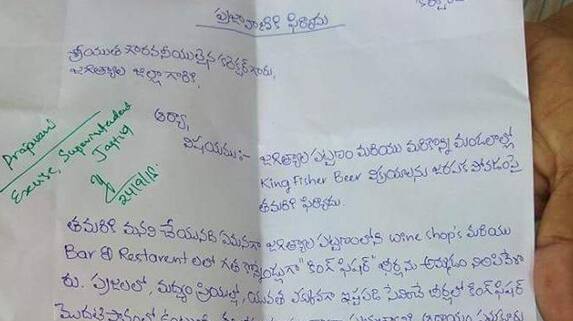 ప్రజావాణికి ఫిర్యాదు
శ్రీయుత గౌరవనీయులైన కలెక్టర్ గారు,
జగిత్యాల జిల్లా గారికి,
ఆర్యా,
విషయము:- జగిత్యాల పట్టణం మరియు మరికొన్ని మండలాల్లో
King Fisher Beer విక్రయాలను జరపక పోవడంపై
తమరికి ఫిర్యాదు.
Prajavani
Excise, Superintendent
Jagityal
24/9/18
తమరికి మనవి చేయునది ఏమనగా జగిత్యాల పట్టణంలోని wine shop's మరియు
Bar & Restarent లలో గత కొన్నేండ్లుగా "కింగ్ ఫిషర్" బీర్లను అమ్మడం నిలిపివేశా
రు. ప్రజలలో, మద్యం ప్రియుల్లో, యువత ఎక్కువగా ఇష్టపడి సేవించే బీర్లలో కింగ్ ఫిషర్
మొదటిస్థానంలో